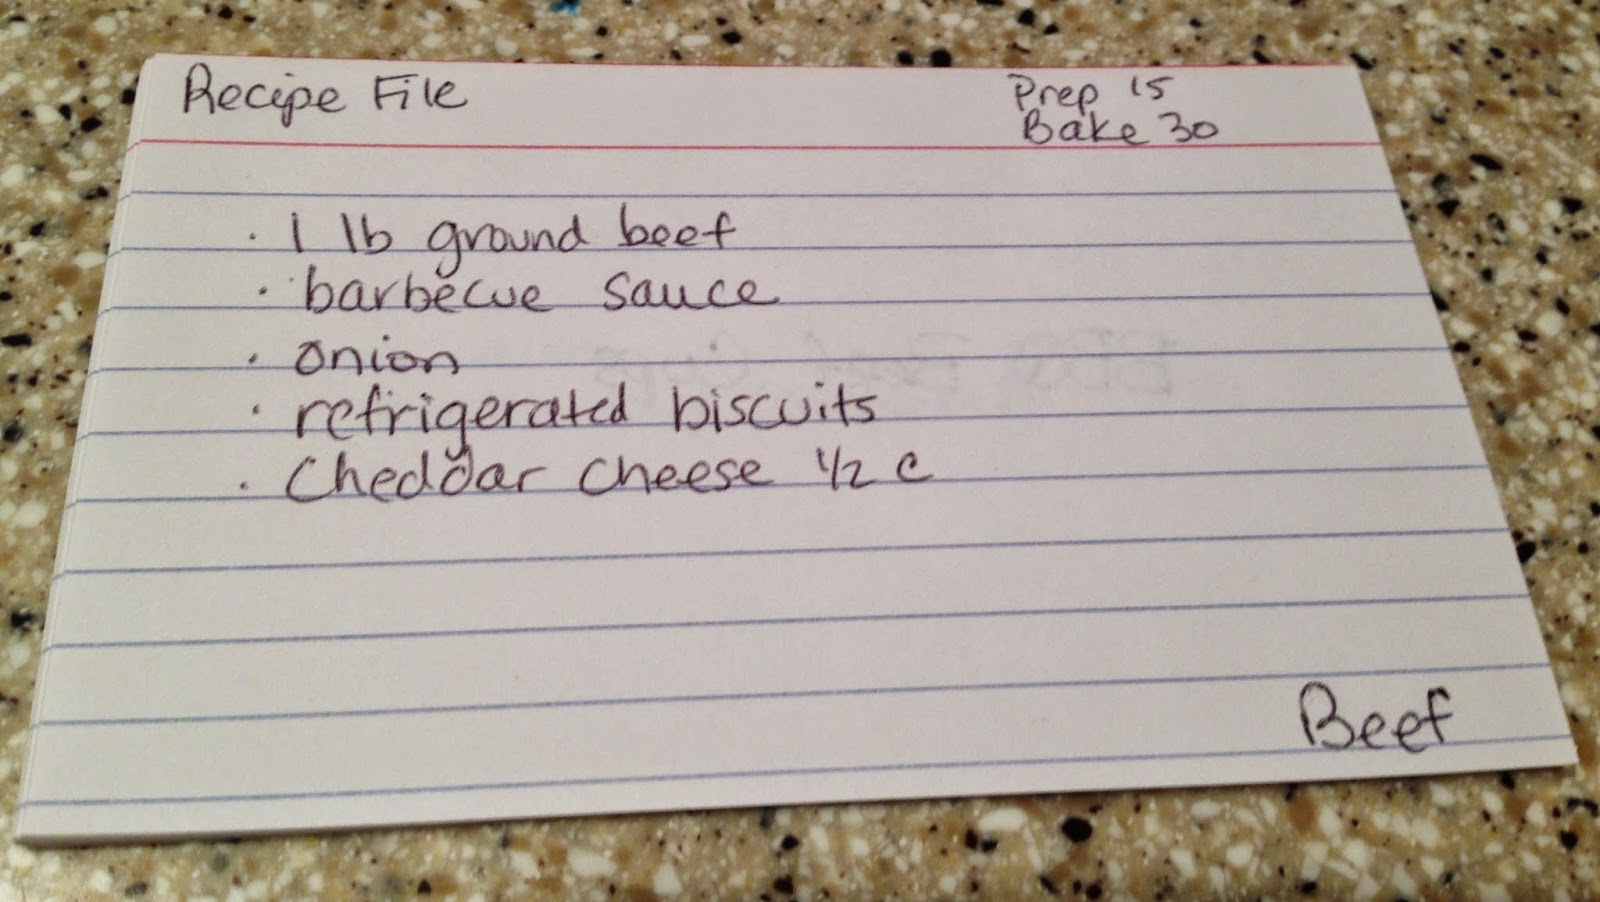 Recipe File
Prep 15
Bake 30
· 1 lb ground beef
· barbecue sauce
· onion
· refrigerated biscuits
· Cheddar cheese 1/2 c
Beef